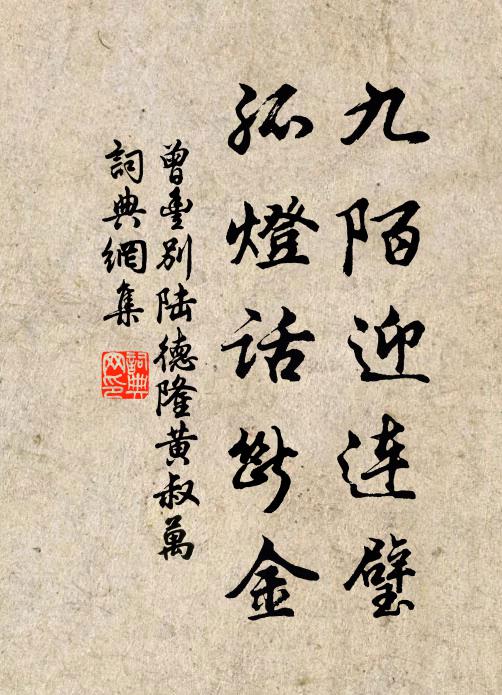 九陌迎连璧
孤燈话断金
曾豐别陆德隆黄叔萬
詞典網集
詞典网印